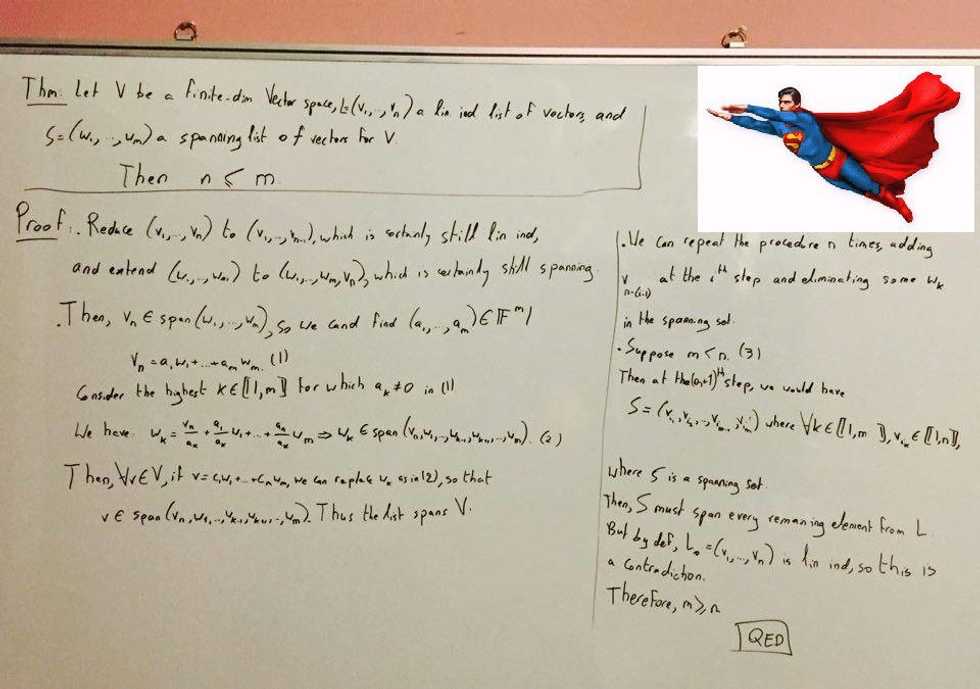 Thm: Let V be a finite-dim Vector space, L=(v₁,..,vₙ) a lin ind list of vectors, and
S=(w₁,..,wₘ) a spanning list of vectors for V.
Then n ⩽ m
Proof: . Reduce (v₁,..,vₙ) to (v₁,..,vₙ₋₁), which is certainly still lin ind,
and extend (w₁,..,wₘ) to (w₁,..,wₘ,vₙ), which is certainly still spanning
. Then, vₙ ∈ span(w₁,..,wₘ), so we cand find (a₁,..,aₘ) ∈ 𝔽ᵐ/
vₙ = a₁w₁+..+aₘwₘ. (1)
Consider the highest k∈⟦1,m⟧ for which aₖ≠0 in (1)
We have wₖ = vₙ/aₖ + a₁/aₖ w₁+..+ aₙ/aₖ wₘ ⇒ wₖ ∈ span(vₙ,w₁,..,wₖ₋₁,wₖ₊₁,..,wₘ). (2)
Then, ∀v∈V, if v = c₁w₁+..+cₙwₘ, we can replace wₖ as in (2), so that
v ∈ span(vₙ,w₁,..,wₖ₋₁,wₖ₊₁,..,wₘ). Thus the list spans V.
. We can repeat the procedure n times, adding
vₙ₋₍ᵢ₋₁₎ at the iᵗʰ step and eliminating some wₖ
in the spanning set.
. Suppose m<n. (3)
Then at the step, we would have
S = where ∀k∈⟦1,m⟧, v_iₖ ∈ ⟦1,n⟧,
where S is a spanning set.
Then, S must span every remaining element from L.
But by def, L₀=(v₁,..,vₙ) is lin ind, so this is
a contradiction.
Therefore, m⩾n
QED